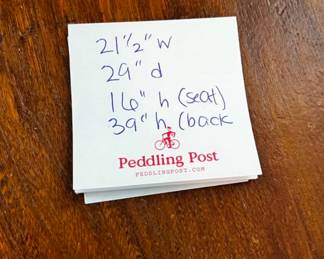 21 1/2" W
29" d
16" h (seat)
39" h (back
Peddling Post
PEDDLINGPOST.COM